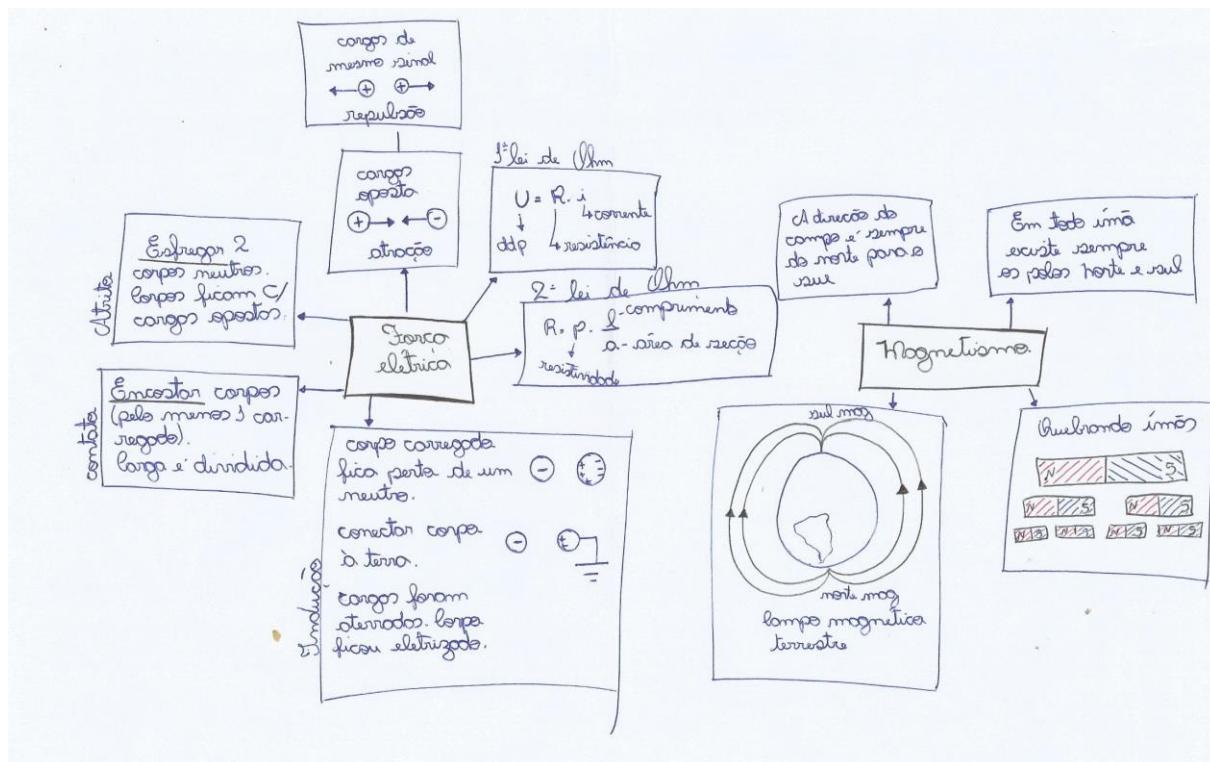 cargas de
mesmo sinal
+ +
repulsão
cargas
oposta
+ -
atração
1ª lei de Ohm
U = R. i
corrente
ddp
resistência
2ª lei de Ohm
R = p. l - comprimento
a - área de secção
resistividade
Atrito
Esfregar 2
corpos neutros.
Corpos ficam c/
cargas opostas.
Força
elétrica
contato
Encostar corpos
(pelo menos 1 car-
regado).
Carga é dividida.
Indução
corpo carregado
fica perto de um
neutro.
conectar corpo
à terra.
cargas foram
aterradas. Corpo
ficou eletrizado.
A direção do
campo é sempre
do norte para o
sul
Em todo ímã
existe sempre
os polos norte e sul
Magnetismo
sul mag
norte mag
Campo magnético
terrestre
Quebrando ímãs
N S
N S N S
N S N S N S N S